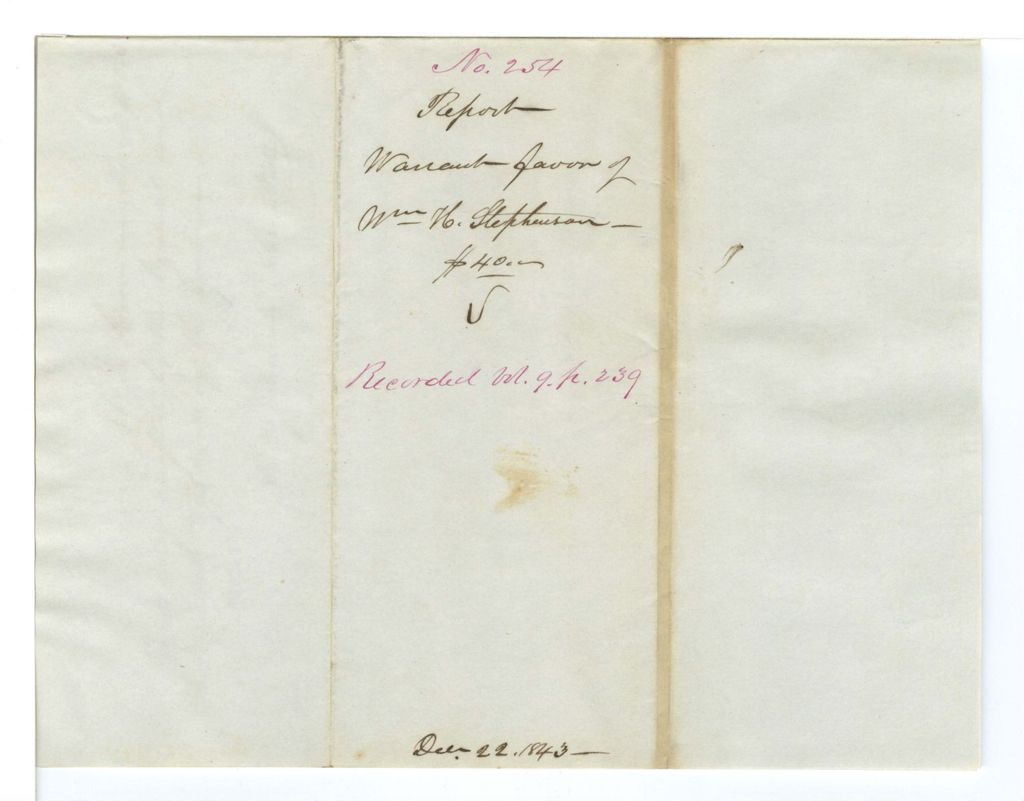 No. 254
Report
Warrant favor of
Wm H. Stephenson
$40
Recorded Vol. 9. p. 239
Decr 22. 1843